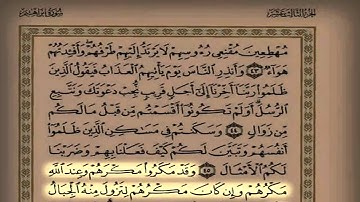 الجزء الثالث عشر سورة إبراهيم
مُهْطِعِينَ مُقْنِعِي رُءُوسِهِمْ لَا يَرْتَدُّ إِلَيْهِمْ طَرْفُهُمْ وَأَفْئِدَتُهُمْ
هَوَاءٌ ٤٣ وَأَنذِرِ النَّاسَ يَوْمَ يَأْتِيهِمُ الْعَذَابُ فَيَقُولُ الَّذِينَ
ظَلَمُوا رَبَّنَا أَخِّرْنَا إِلَىٰ أَجَلٍ قَرِيبٍ نُّجِبْ دَعْوَتَكَ وَنَتَّبِعِ
الرُّسُلَ أَوَلَمْ تَكُونُوا أَقْسَمْتُم مِّن قَبْلُ مَا لَكُم
مِّن زَوَالٍ ٤٤ وَسَكَنتُمْ فِي مَسَاكِنِ الَّذِينَ ظَلَمُوا
أَنفُسَهُمْ وَتَبَيَّنَ لَكُمْ كَيْفَ فَعَلْنَا بِهِمْ وَضَرَبْنَا
لَكُمُ الْأَمْثَالَ ٤٥ وَقَدْ مَكَرُوا مَكْرَهُمْ وَعِندَ اللَّهِ
مَكْرُهُمْ وَإِن كَانَ مَكْرُهُمْ لِتَزُولَ مِنْهُ الْجِبَالُ